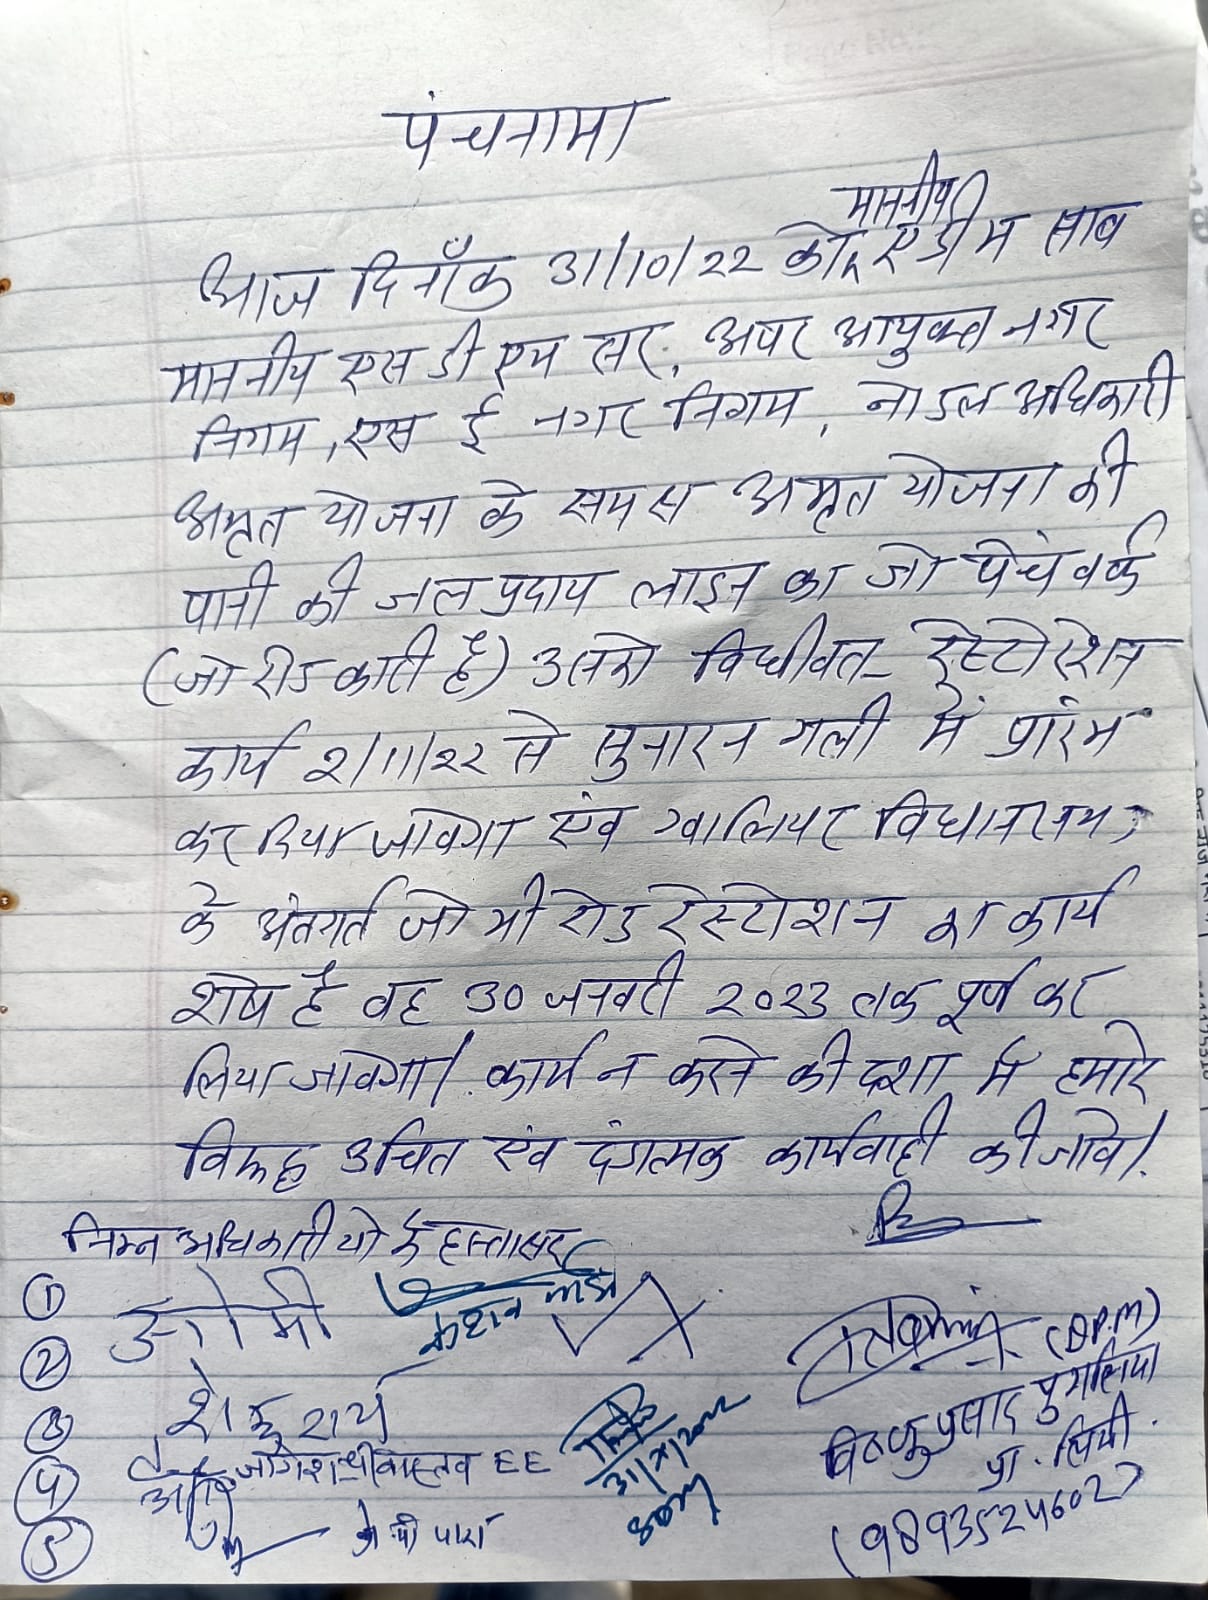 पंचनामा
माननीय
आज दिनाँक 31/10/22 को एडीम साब
माननीय एस डी एम सर, अपर आयुक्त नगर
निगम, एस ई नगर निगम, नोडल अधिकारी
अमृत योजना के समक्ष अमृत योजना की
पानी की जल प्रदाय लाइन का जो पेंच वर्क
(जो रोड काटी है) उसको विधीवत रेस्टोरेशन
कार्य 2/11/22 से सुनारन गली में प्रारंभ
कर दिया जावेगा एंव ग्वालियर विधानसभा
के अंतगर्त जो भी रोड रेस्टोशन का कार्य
शेष है वह 30 जनवरी 2023 तक पूर्ण कर
लिया जावेगा। कार्य न करने की दशा में हमारे
विरूद्ध उचित एंव दंगत्मक कार्यवाही की जावे।
निम्न अधिकारीयो के हस्ताक्षर
①
②
③
④ जागेश श्रीवास्तव EE
⑤ के पी
31/X/2022
SDM
(DPM)
विष्णु प्रसाद पुगलिया
प्रा. लिमी.
(9893524602)